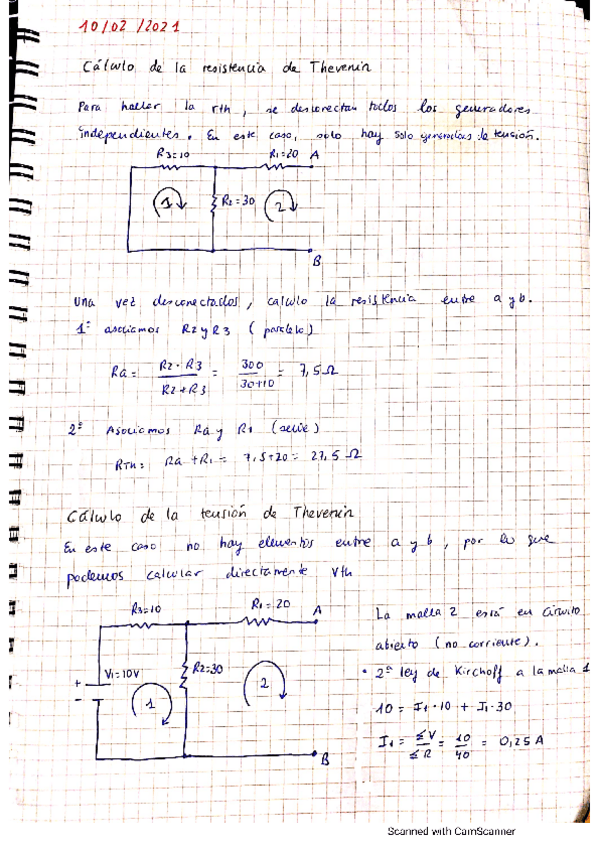 10/02/2021
Cálculo de la resistencia de Thevenin
Para hallar la rth, se desconectan todos los generadores
independientes. En este caso, solo hay solo generadores de tensión.
R3=10 R1=20 A
1 R2=30 2
B
Una vez desconectados, calculo la resistencia entre a y b.
1º asociamos R2 y R3 (paralelo)
Ra = R2·R3 / R2+R3 = 300 / 30+10 = 7,5 Ω
2º Asociamos Ra y R1 (serie)
RTH = Ra + R1 = 7,5+20 = 27,5 Ω
Cálculo de la tensión de Thevenin
En este caso no hay elementos entre a y b, por lo que
podemos calcular directamente Vth
R3=10 R1=20 A
+ - V1=10V 1 R2=30 2
B
La malla 2 está en circuito
abierto (no corriente).
• 2ª ley de Kirchoff a la malla 1
10 = I1·10 + I1·30
I1 = ΣV / ΣR = 10 / 40 = 0,25 A
Scanned with CamScanner